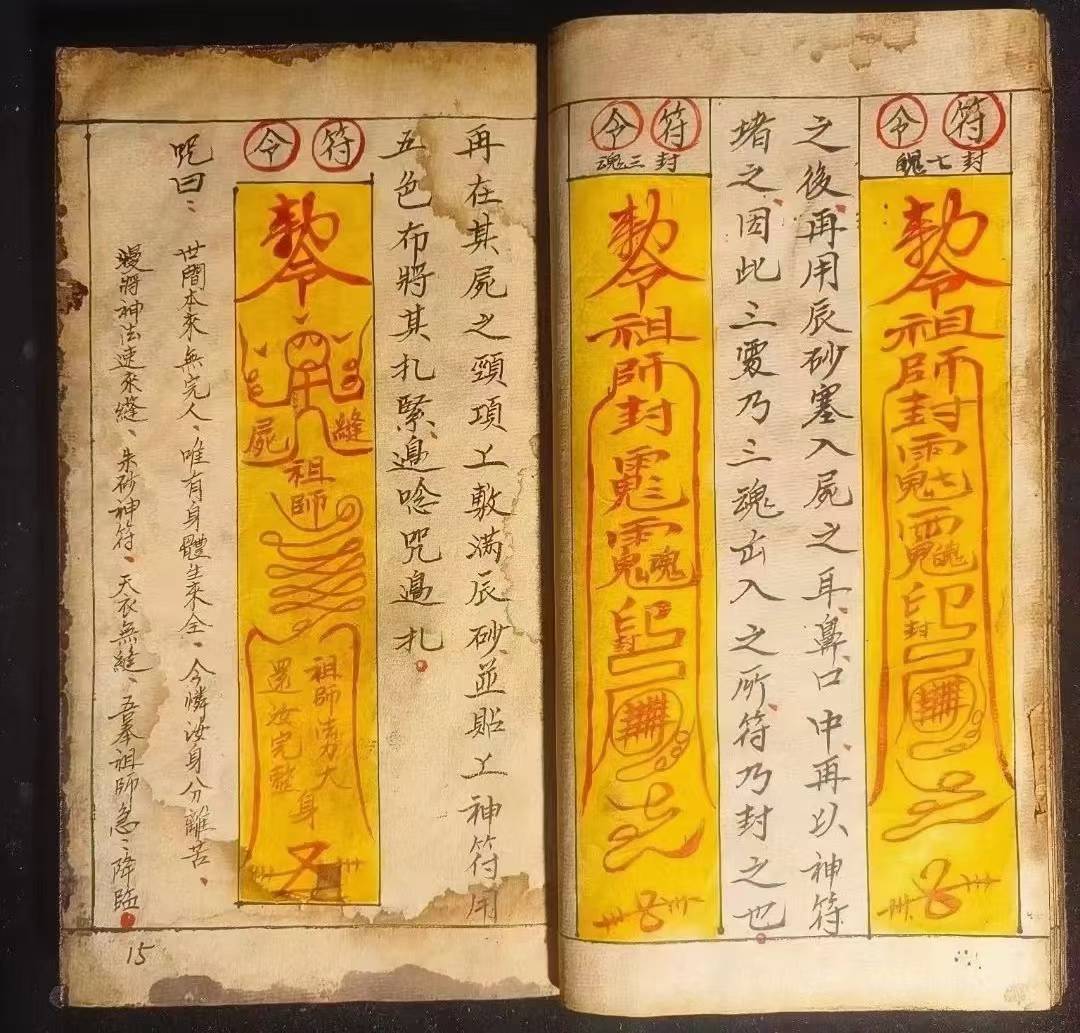 符令
封七魄
勅令
祖師
封
印
封
之後再用辰砂塞入屍之耳鼻口中再以神符
堵之因此三竅乃三魂出入之所符乃封之也
符令
封三魂
勅令
祖師
封
魂
印
封
再在其屍之頸項上敷满辰砂並貼上神符用
五色布將其扎緊邊唸咒邊扎
符令
勅令
縫屍
祖師
祖師
大身
還汝完整
咒曰
世間本來無完人、唯有身體生來全、今憐汝身分離苦、
神法速來縫、朱砂神符、天衣無縫、吾奉祖師急、降臨
15